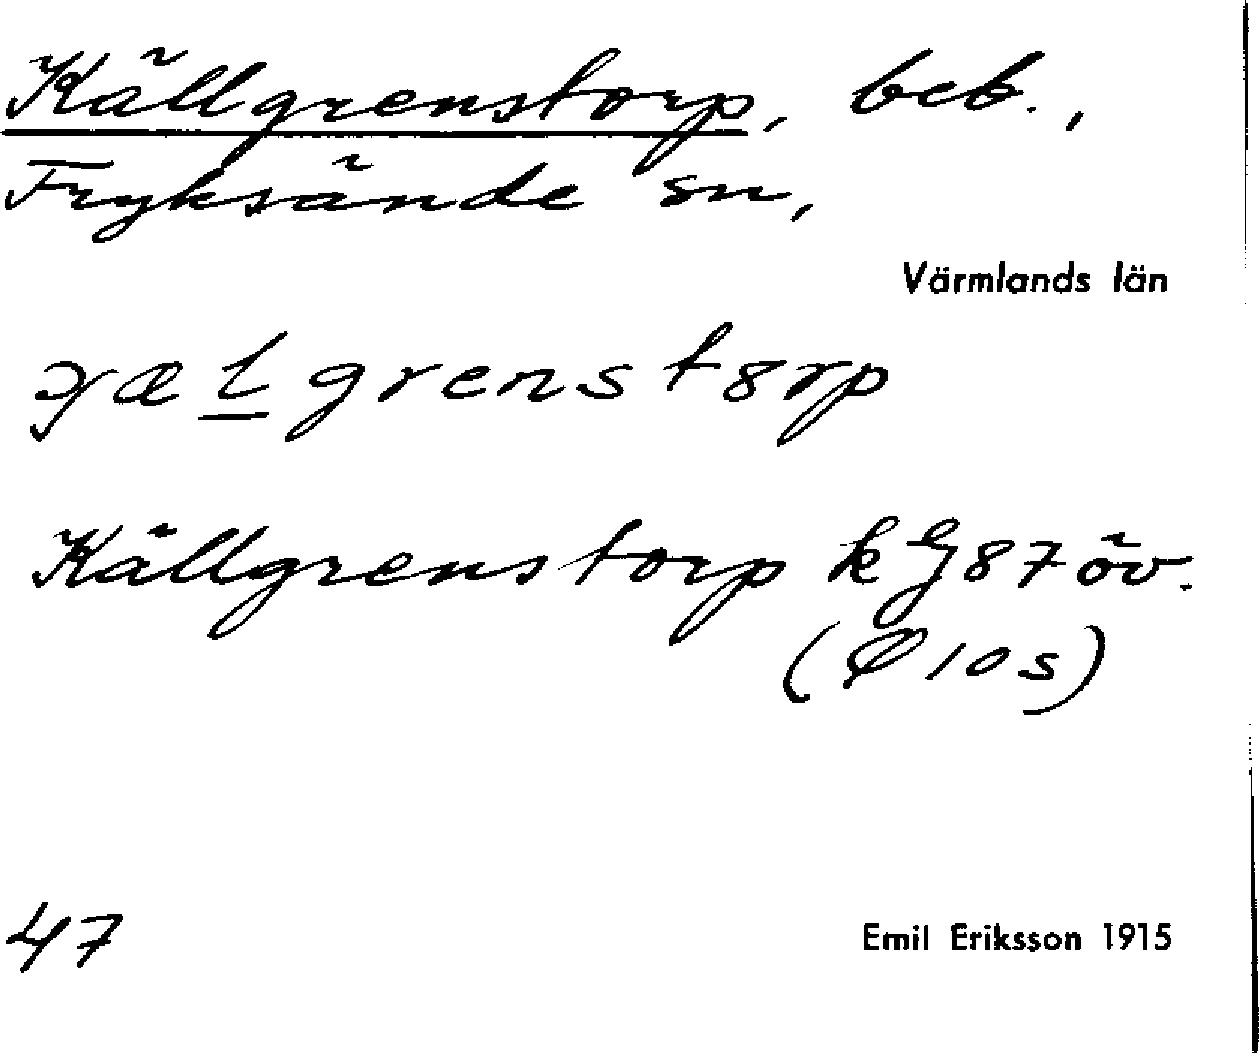 Källgrenstorp, beb.,
Fryksände sn,
Värmlands län
Källgrenstorp k G 87 öv.
(Ø 10 s)
47
Emil Eriksson 1915